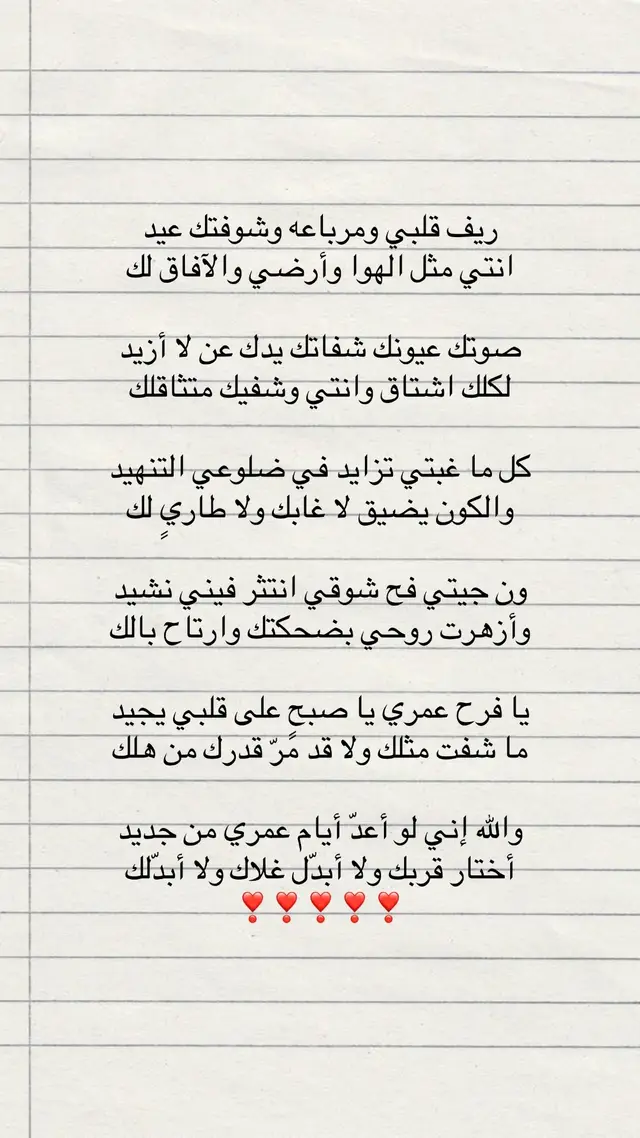 ريف قلبي ومرباعه وشوفتك عيد
انتي مثل الهوا وأرضي والآفاق لك
صوتك عيونك شفاتك يدك عن لا أزيد
لكلك اشتاق وانتي وشفيك متثاقلك
كل ما غبتي تزايد في ضلوعي التنهيد
والكون يضيق لا غابك ولا طاريٍ لك
ون جيتي فح شوقي انتثر فيني نشيد
وأزهرت روحي بضحكتك وارتاح بالك
يا فرح عمري يا صبحٍ على قلبي يجيد
ما شفت مثلك ولا قد مرّ قدرك من هلك
والله إني لو أعدّ أيام عمري من جديد
أختار قربك ولا أبدّل غلاك ولا أبدّلك
❣️❣️❣️❣️❣️